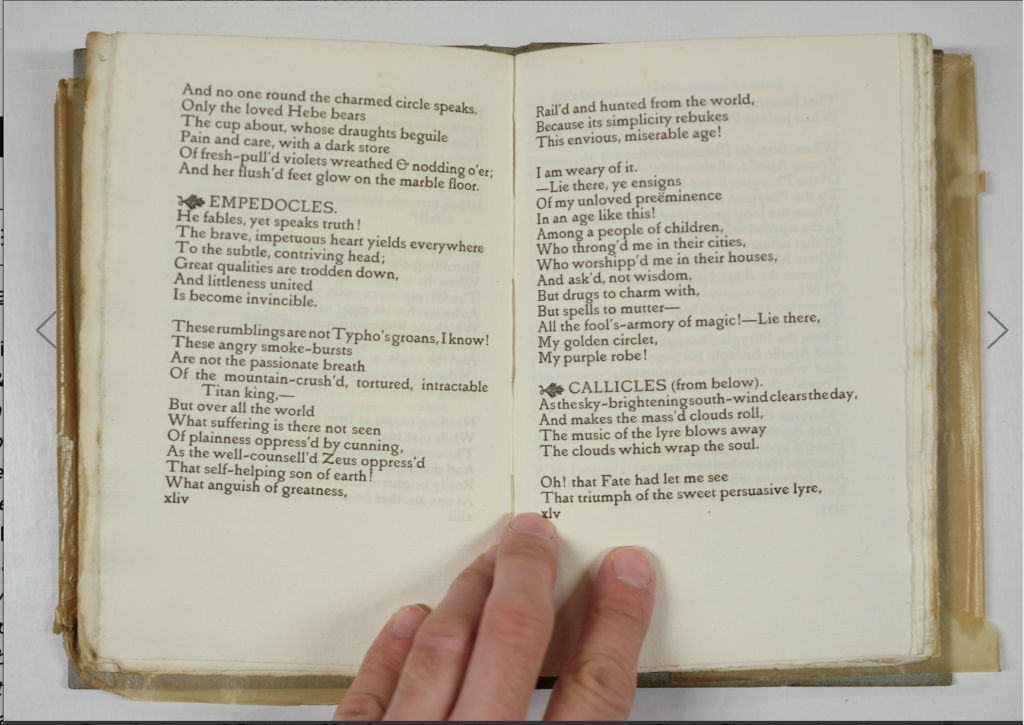 And no one round the charmed circle speaks.
Only the loved Hebe bears
The cup about, whose draughts beguile
Pain and care, with a dark store
Of fresh-pull'd violets wreathed & nodding o'er;
And her flush'd feet glow on the marble floor.
EMPEDOCLES.
He fables, yet speaks truth!
The brave, impetuous heart yields everywhere
To the subtle, contriving head;
Great qualities are trodden down,
And littleness united
Is become invincible.
These rumblings are not Typho's groans, I know!
These angry smoke-bursts
Are not the passionate breath
Of the mountain-crush'd, tortured, intractable
Titan king,—
But over all the world
What suffering is there not seen
Of plainness oppress'd by cunning,
As the well-counsell'd Zeus oppress'd
That self-helping son of earth!
What anguish of greatness,
xliv
Rail'd and hunted from the world,
Because its simplicity rebukes
This envious, miserable age!
I am weary of it.
—Lie there, ye ensigns
Of my unloved preëminence
In an age like this!
Among a people of children,
Who throng'd me in their cities,
Who worshipp'd me in their houses,
And ask'd, not wisdom,
But drugs to charm with,
But spells to mutter—
All the fool's-armory of magic!—Lie there,
My golden circlet,
My purple robe!
CALLICLES (from below).
As the sky-brightening south-wind clears the day,
And makes the mass'd clouds roll,
The music of the lyre blows away
The clouds which wrap the soul.
Oh! that Fate had let me see
That triumph of the sweet persuasive lyre,
xlv